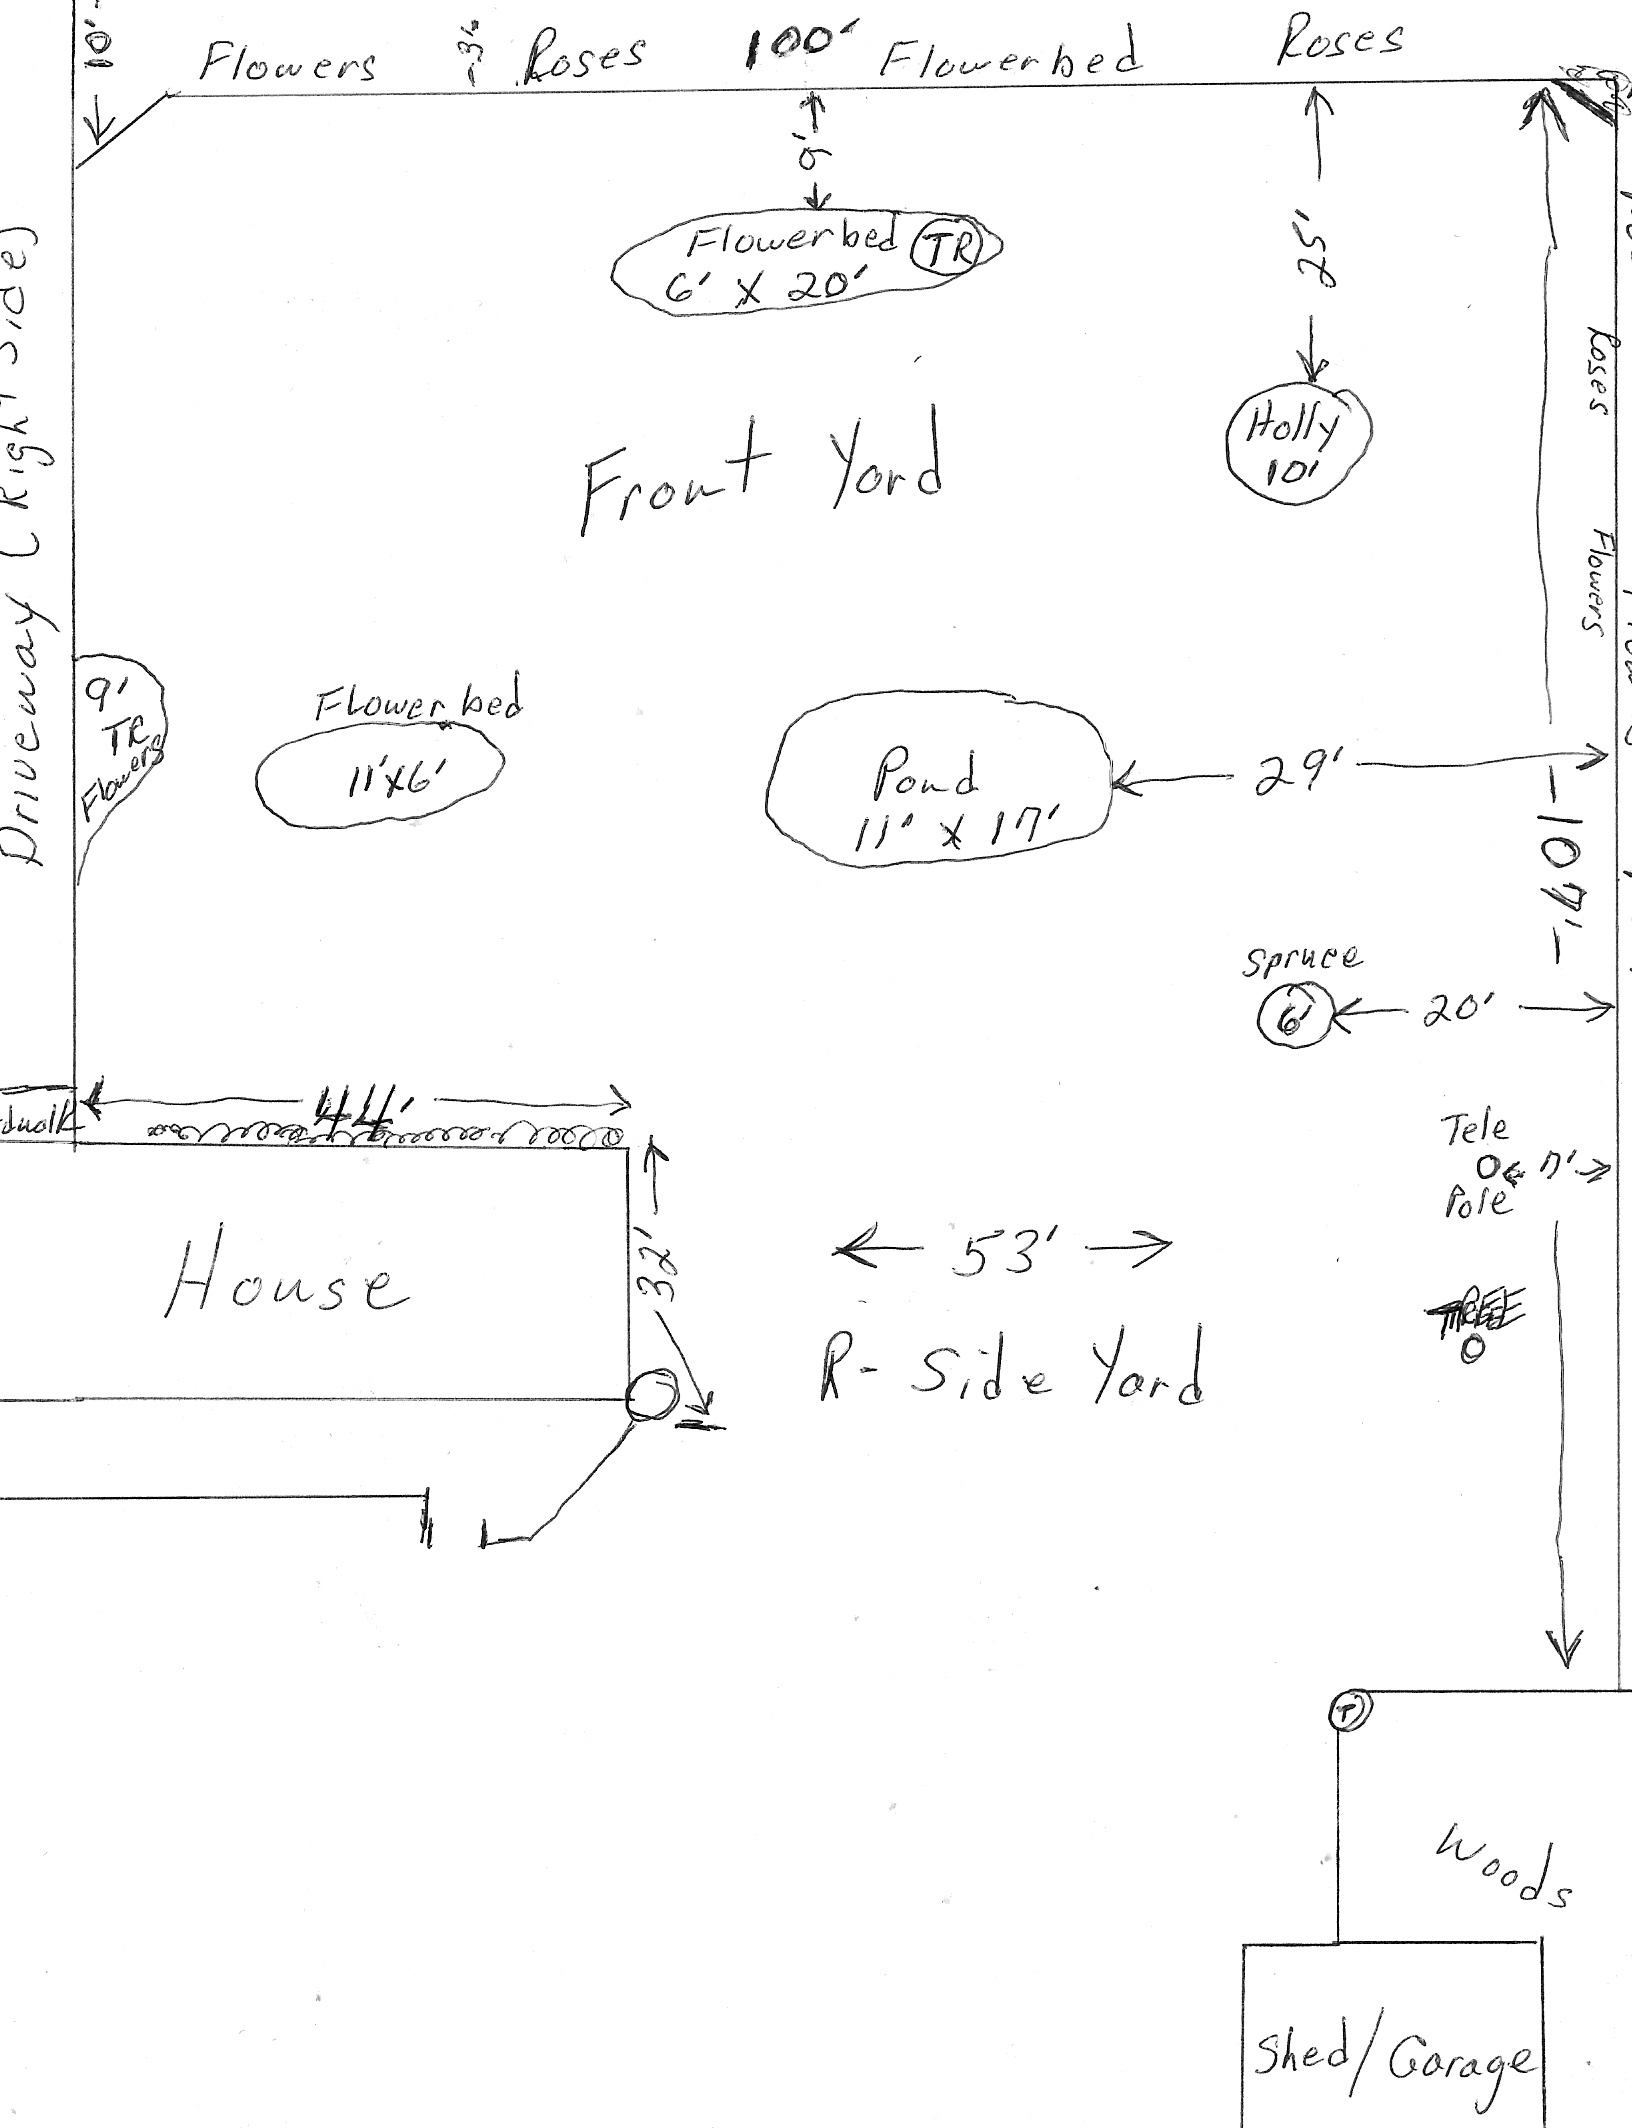 10'
Flowers
3'
Roses
100'
Flowerbed
Roses
9'
Flowerbed TR
6' X 20'
25'
Driveway (Right Side)
Holly
10'
Roses
Front Yard
Flowers
9'
TR
Flowers
Flowerbed
11'X6'
Pond
11' X 17'
29'
107'
Spruce
6'
20'
44'
Tele
7'
Pole
House
32'
53'
TREE
R- Side Yard
T
Woods
Shed/Garage